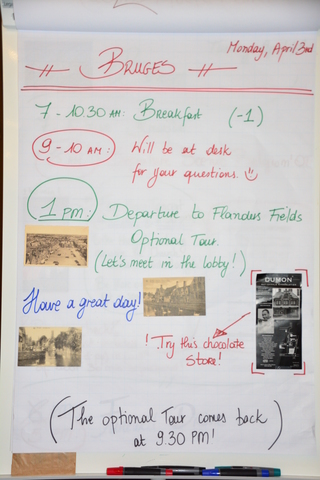 Monday, April 3rd
BRUGES
7 - 10.30 AM: Breakfast (-1)
9 - 10 AM: Will be at desk
for your questions.
1 PM: Departure to Flandus Fields
Optional Tour.
(Let's meet in the lobby!)
Have a great day!
DUMON
! Try this chocolate
Store!
(The optional Tour comes back
at 9.30 PM!)